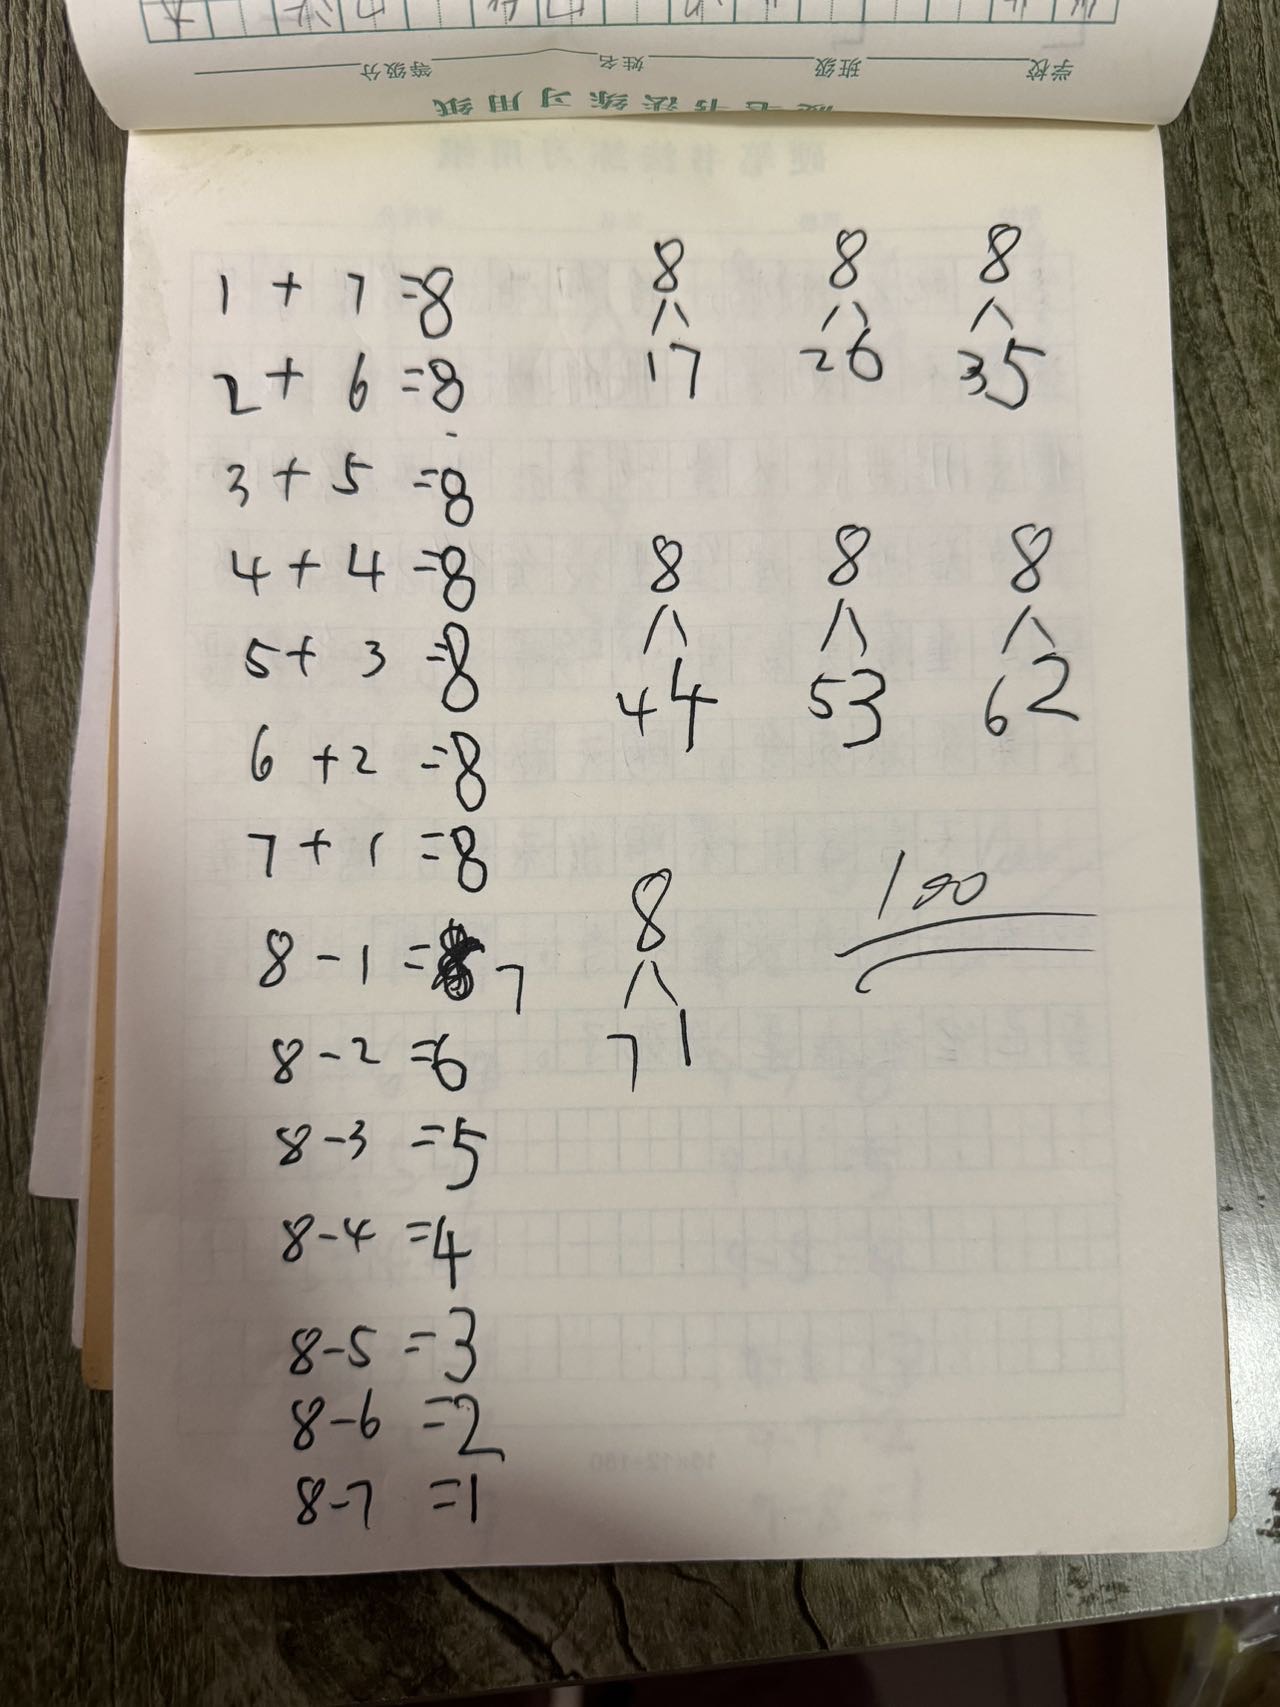 学校 班级 姓名 等级分
硬笔书法练习用纸
1 + 7 =8
2 + 6 =8
3 + 5 =8
4 + 4 =8
5 + 3 =8
6 + 2 =8
7 + 1 =8
8 - 1 = 7
8 - 2 =6
8 - 3 =5
8 - 4 =4
8 - 5 =3
8 - 6 =2
8 - 7 =1
8 8 8
1 7 2 6 3 5
8 8 8
4 4 5 3 6 2
8
7 1
100